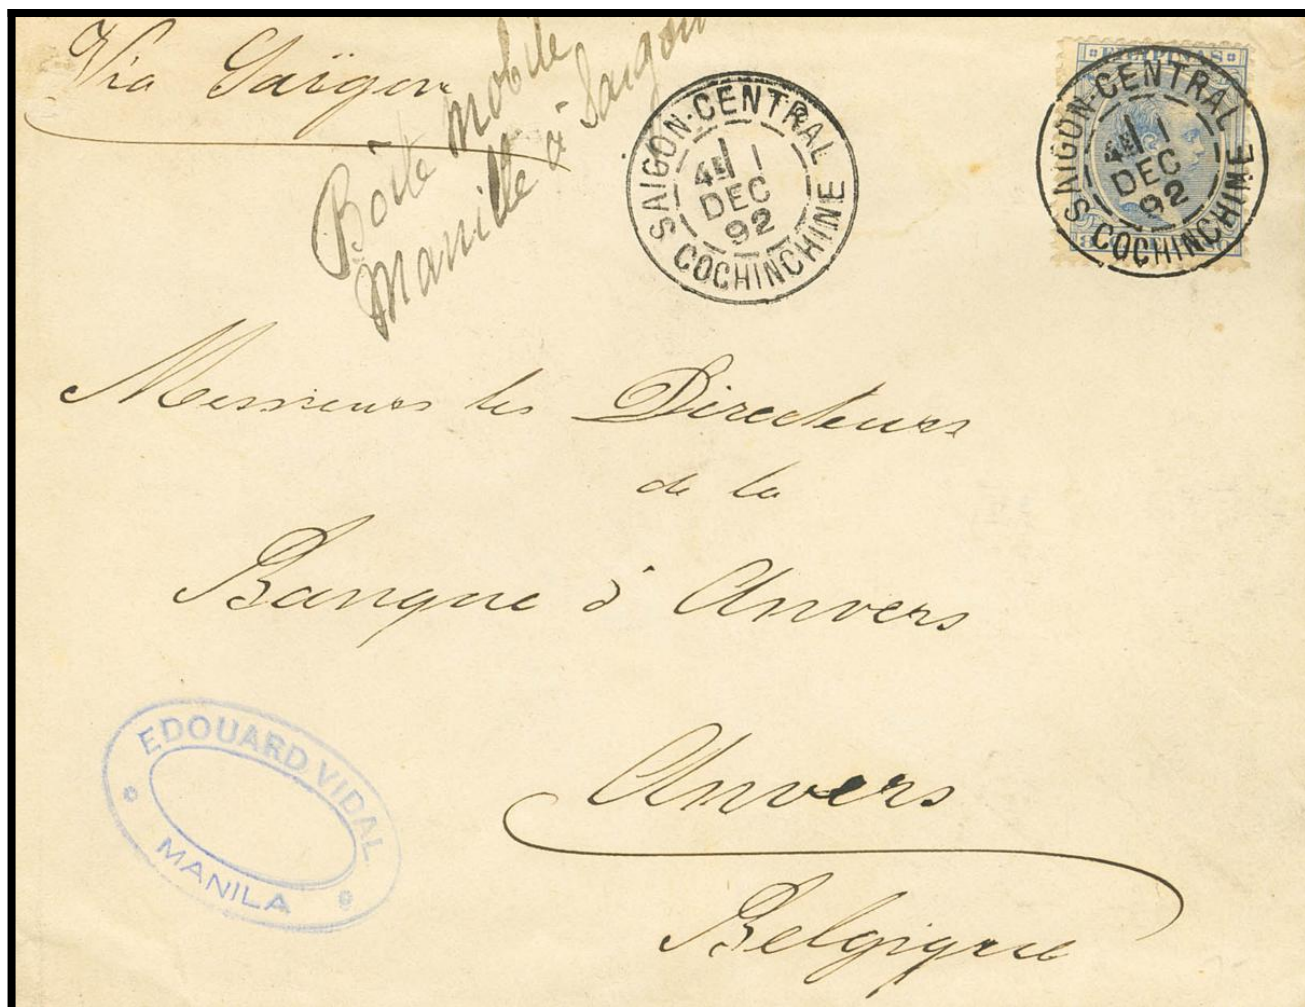 Via Saïgon
Boîte mobile
Manille à Saïgon
SAIGON-CENTRAL
4E 1
DEC
92
S COCHINCHINE
FILIPINAS
SAIGON-CENTRAL
4E 1
DEC
92
S COCHINCHINE
Messieurs les Directeurs
de la
Banque d'Anvers
EDOUARD VIDAL
MANILA
Anvers
Belgique